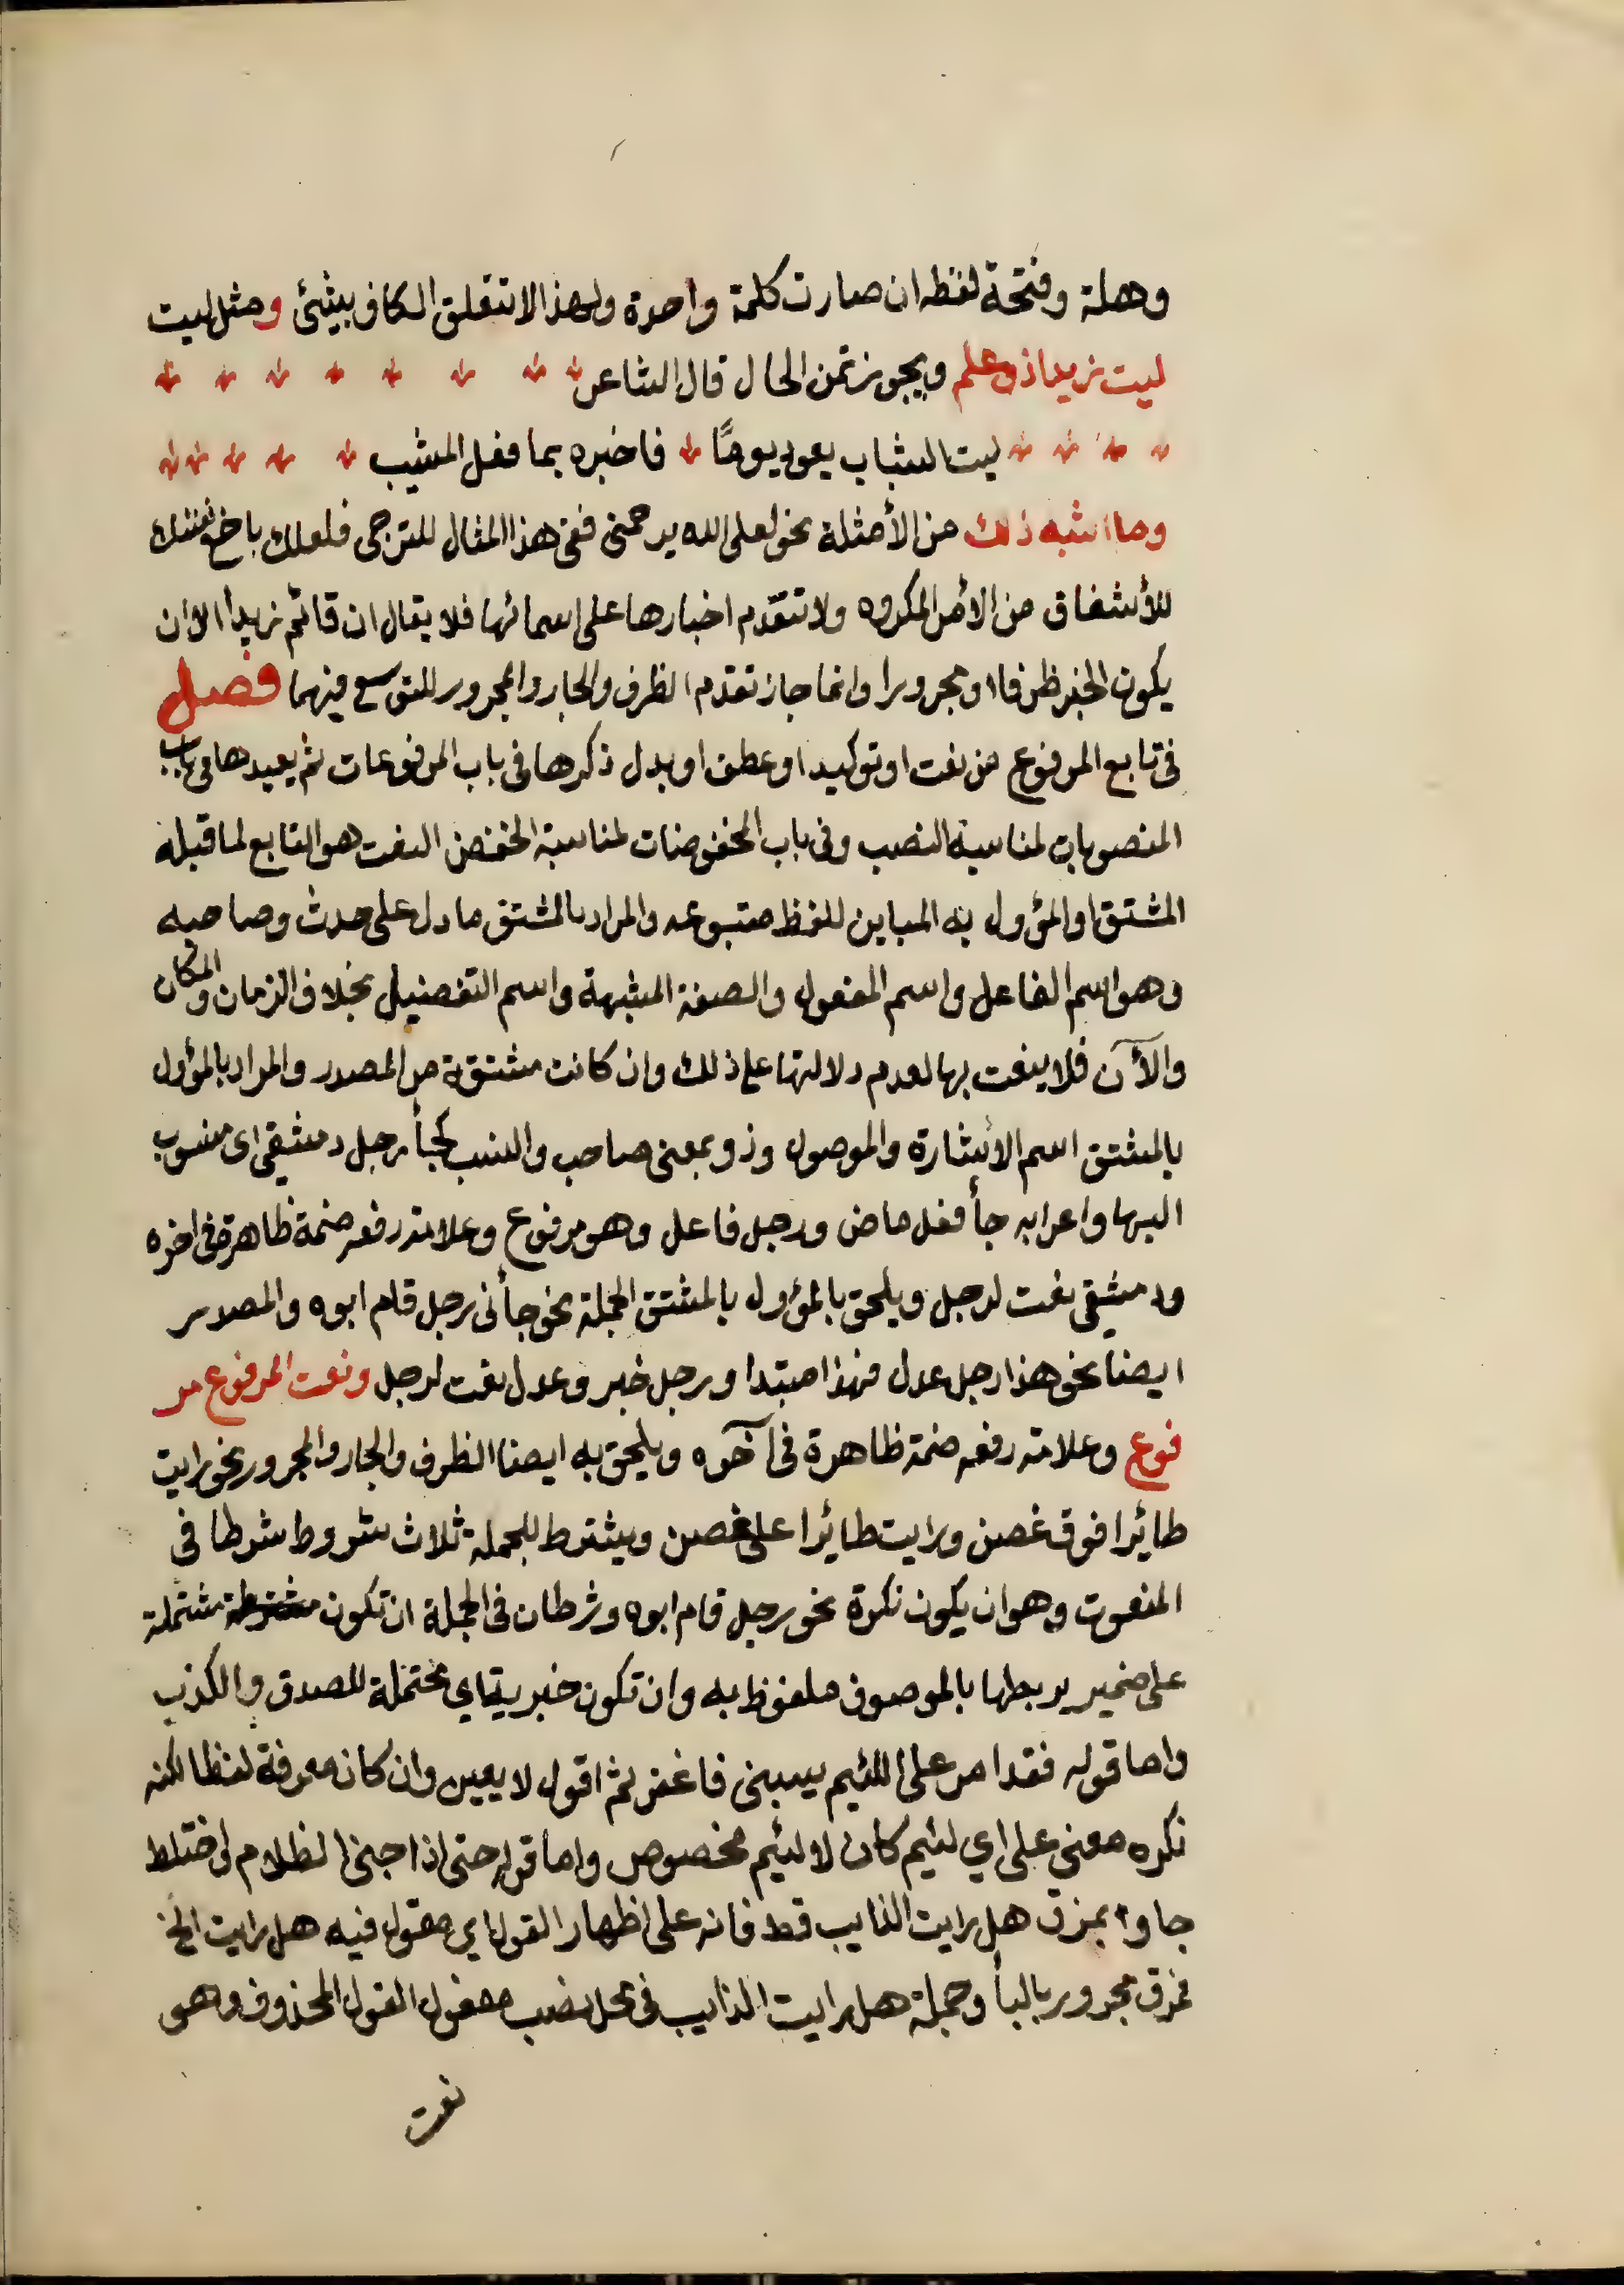 وهلة وفتحة لفظه ان صارت كلمة واحدة ولهذا لا تتعلق الكاف بشئ ومثل ليت
ليت زيدا ذو علم ويجوز تمن الحال قال الشاعر
ليت الشباب يعود يومًا فاخبره بما فعل المشيب
وما اشبه ذلك من الأمثلة نحو لعل الله يرحمني ففي هذا المثال للترجى فلعلك باخع نفسك
للأشفاق من الأمر المكروه ولا تتقدم اخبارها على اسمائها فلا يقال ان قائم زيدا الا ان
يكون الخبر ظرفا او مجرورا وانما جاز تقدم الظرف والجار والمجرور للتوسع فيهما فصل
فى تابع المرفوع من نعت او توكيد او عطف او بدل ذكرها فى باب المرفوعات ثم يعيدها فى باب
المنصوبات لمناسبة النصب وفى باب المخفوضات لمناسبة الخفض النعت هو التابع لما قبله
المشتق او المؤول به المباين للفظ متبوعه والمراد بالمشتق ما دل على حدث وصاحبه
وهو اسم الفاعل واسم المفعول والصفة المشبهة واسم التفضيل بخلاف الزمان والمكان
والآن فلا ينعت بها لعدم دلالتها على ذلك وان كانت مشتقة من المصدر والمراد بالمؤول
بالمشتق اسم الأشارة والموصول وذو بمعنى صاحب والنسب كجأ رجل دمشقي اى منسوب
اليها واعرابه جأ فعل ماض ورجل فاعل وهو مرفوع وعلامة رفعه ضمة ظاهرة فى اخره
ودمشيقى نعت لرجل ويلحق بالمؤول بالمشتق الجملة نحو جأنى رجل قام ابوه والمصدر
ايضا نحو هذا رجل عدل فهذا مبتدا ورجل خبر وعدل نعت لرجل ونعت المرفوع مر
فوع وعلامة رفعه ضمة ظاهرة فى آخره ويلحق به ايضا الظرف والجار والمجرور نحو رايت
طائرا فوق غصن ورايت طائرا على غصن ويشترط للجملة ثلاث شروط شرطا فى
المنعوت وهو ان يكون نكرة نحو رجل قام ابوه وشرطان فى الجملة ان تكون مشتملة
على ضمير يربطها بالموصوف ملفوظ به وان تكون خبرية اي محتملة للصدق والكذب
واما قوله فقد امر على اللئيم يسبنى فاغفر ثم اقول لا يعين وان كان معرفة لفظا لكنه
نكره معنى على اي لئيم كان لا لئيم مخصوص واما قوله حتى اذا جن الظلام واختلط
جاوا بمزق هل رايت الذايب قط فانه على اظهار القول اي مقول فيه هل رايت الخ
فمزق مجرور بالبأ وجملة هل رايت الذايب فى محل نصب مفعول القول المحذوف وهو
نعت